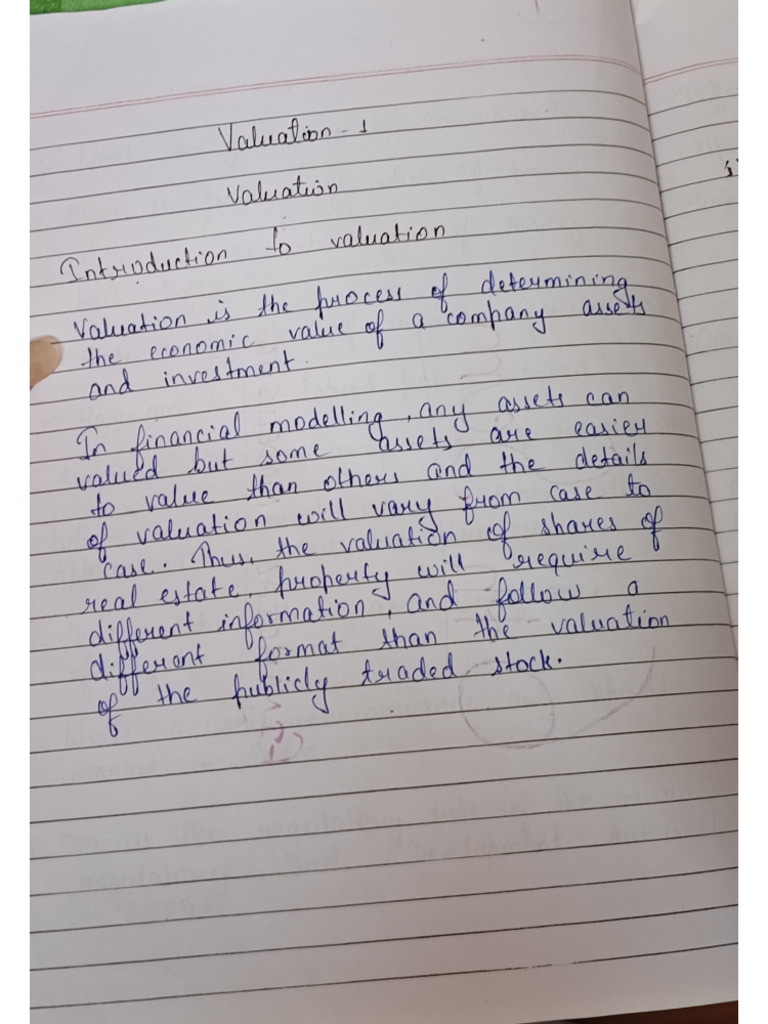 Valuation - 1
Valuation
Introduction to valuation
Valuation is the process of determining
the economic value of a company assets
and investment.
In financial modelling, any assets can
valued but some assets are easier
to value than others and the details
of valuation will vary from case to
case. Thus, the valuation of shares of
real estate, property will require
different information, and follow a
different format than the valuation
of the publicly traded stock.